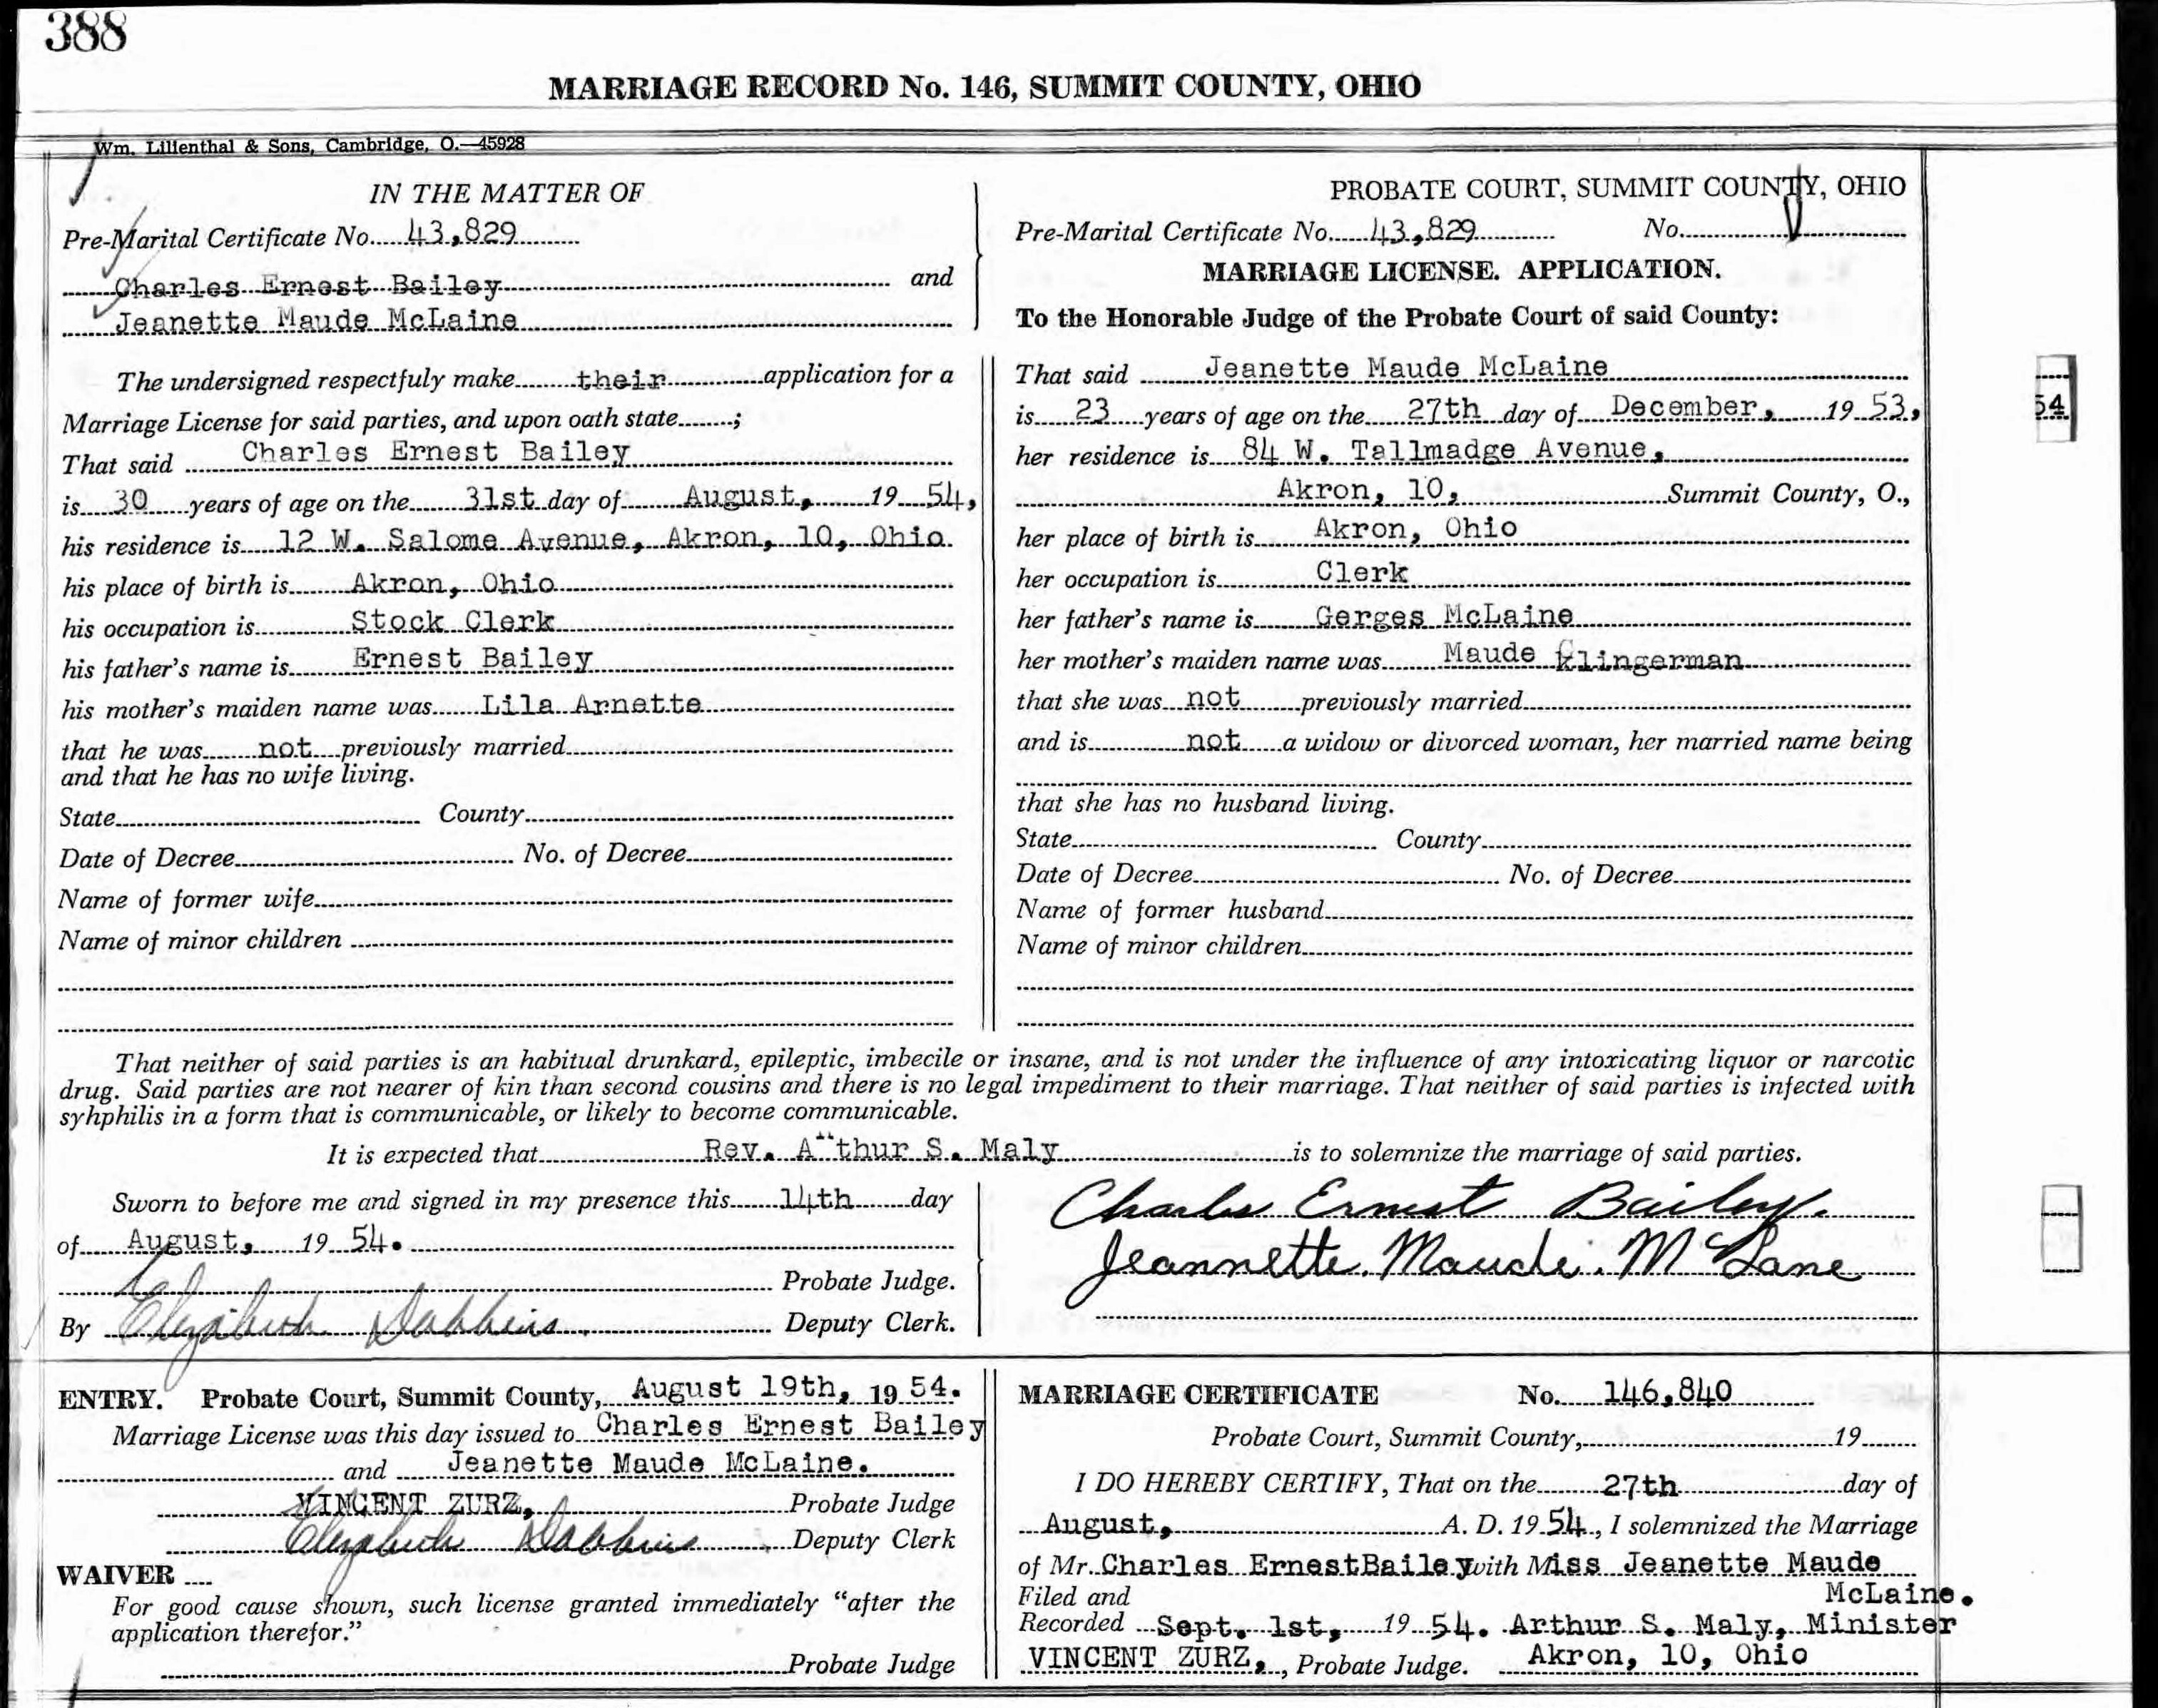 388
MARRIAGE RECORD No. 146, SUMMIT COUNTY, OHIO
Wm. Lilienthal & Sons, Cambridge, O.—45928
IN THE MATTER OF
Pre-Marital Certificate No. 43,829
Charles Ernest Bailey and
Jeanette Maude McLaine
The undersigned respectfuly make their application for a
Marriage License for said parties, and upon oath state ;
That said Charles Ernest Bailey
is 30 years of age on the 31st day of August, 19 54,
his residence is 12 W. Salome Avenue, Akron, 10, Ohio
his place of birth is Akron, Ohio
his occupation is Stock Clerk
his father's name is Ernest Bailey
his mother's maiden name was Lila Arnette
that he was not previously married
and that he has no wife living.
State County
Date of Decree No. of Decree
Name of former wife
Name of minor children
PROBATE COURT, SUMMIT COUNTY, OHIO
Pre-Marital Certificate No. 43,829 No.
MARRIAGE LICENSE. APPLICATION.
To the Honorable Judge of the Probate Court of said County:
That said Jeanette Maude McLaine
is 23 years of age on the 27th day of December, 19 53,
her residence is 84 W. Tallmadge Avenue,
Akron, 10, Summit County, O.,
her place of birth is Akron, Ohio
her occupation is Clerk
her father's name is Gerges McLaine
her mother's maiden name was Maude Klingerman
that she was not previously married
and is not a widow or divorced woman, her married name being
that she has no husband living.
State County
Date of Decree No. of Decree
Name of former husband
Name of minor children
54
That neither of said parties is an habitual drunkard, epileptic, imbecile or insane, and is not under the influence of any intoxicating liquor or narcotic
drug. Said parties are not nearer of kin than second cousins and there is no legal impediment to their marriage. That neither of said parties is infected with
syhphilis in a form that is communicable, or likely to become communicable.
It is expected that Rev. Arthur S. Maly is to solemnize the marriage of said parties.
Sworn to before me and signed in my presence this 14th day
of August, 19 54.
Probate Judge.
By Elizabeth Dabbins Deputy Clerk.
Charles Ernest Bailey.
Jeannette Maude McLane
ENTRY. Probate Court, Summit County, August 19th, 19 54.
Marriage License was this day issued to Charles Ernest Bailey
and Jeanette Maude McLaine.
VINCENT ZURZ, Probate Judge
Elizabeth Dabbins Deputy Clerk
WAIVER ....
For good cause shown, such license granted immediately "after the
application therefor."
Probate Judge
MARRIAGE CERTIFICATE No. 146,840
Probate Court, Summit County, 19
I DO HEREBY CERTIFY, That on the 27th day of
August, A. D. 19 54, I solemnized the Marriage
of Mr. Charles ErnestBailey with Miss Jeanette Maude
Filed and McLaine.
Recorded Sept. 1st, 19 54. Arthur S. Maly, Minister
VINCENT ZURZ, , Probate Judge. Akron, 10, Ohio